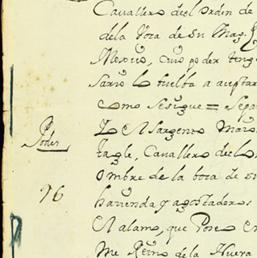 Cavallero del Orden de
dela boca de su Mag.
Mexico, cuio poder
sario lo buelba a
como sesigue =
Poder
El Sargento Maio
tagle, Cavallero del
ombre de la boca de su
96
hazienda y agostaderos
El alamo, que Posee en
Me Reino dela Nueva